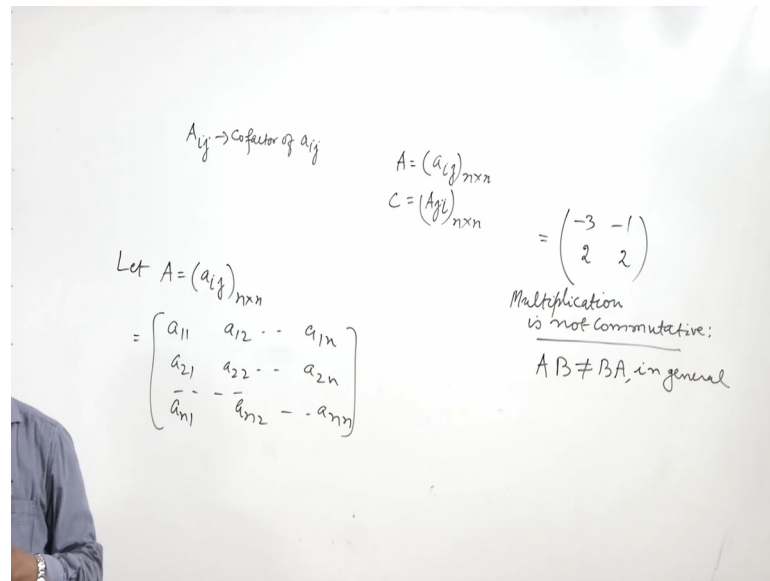 A_ij → Cofactor of a_ij
A = (a_ij)_n×n
C = (A_ji)_n×n
Let A = (a_ij)_n×n
= [ a_11 a_12 - - a_1n
a_21 a_22 - - a_2n
- - - -
a_n1 a_n2 - - a_nn ]
= ( -3 -1
2 2 )
Multiplication
is not Commutative:
AB ≠ BA, in general